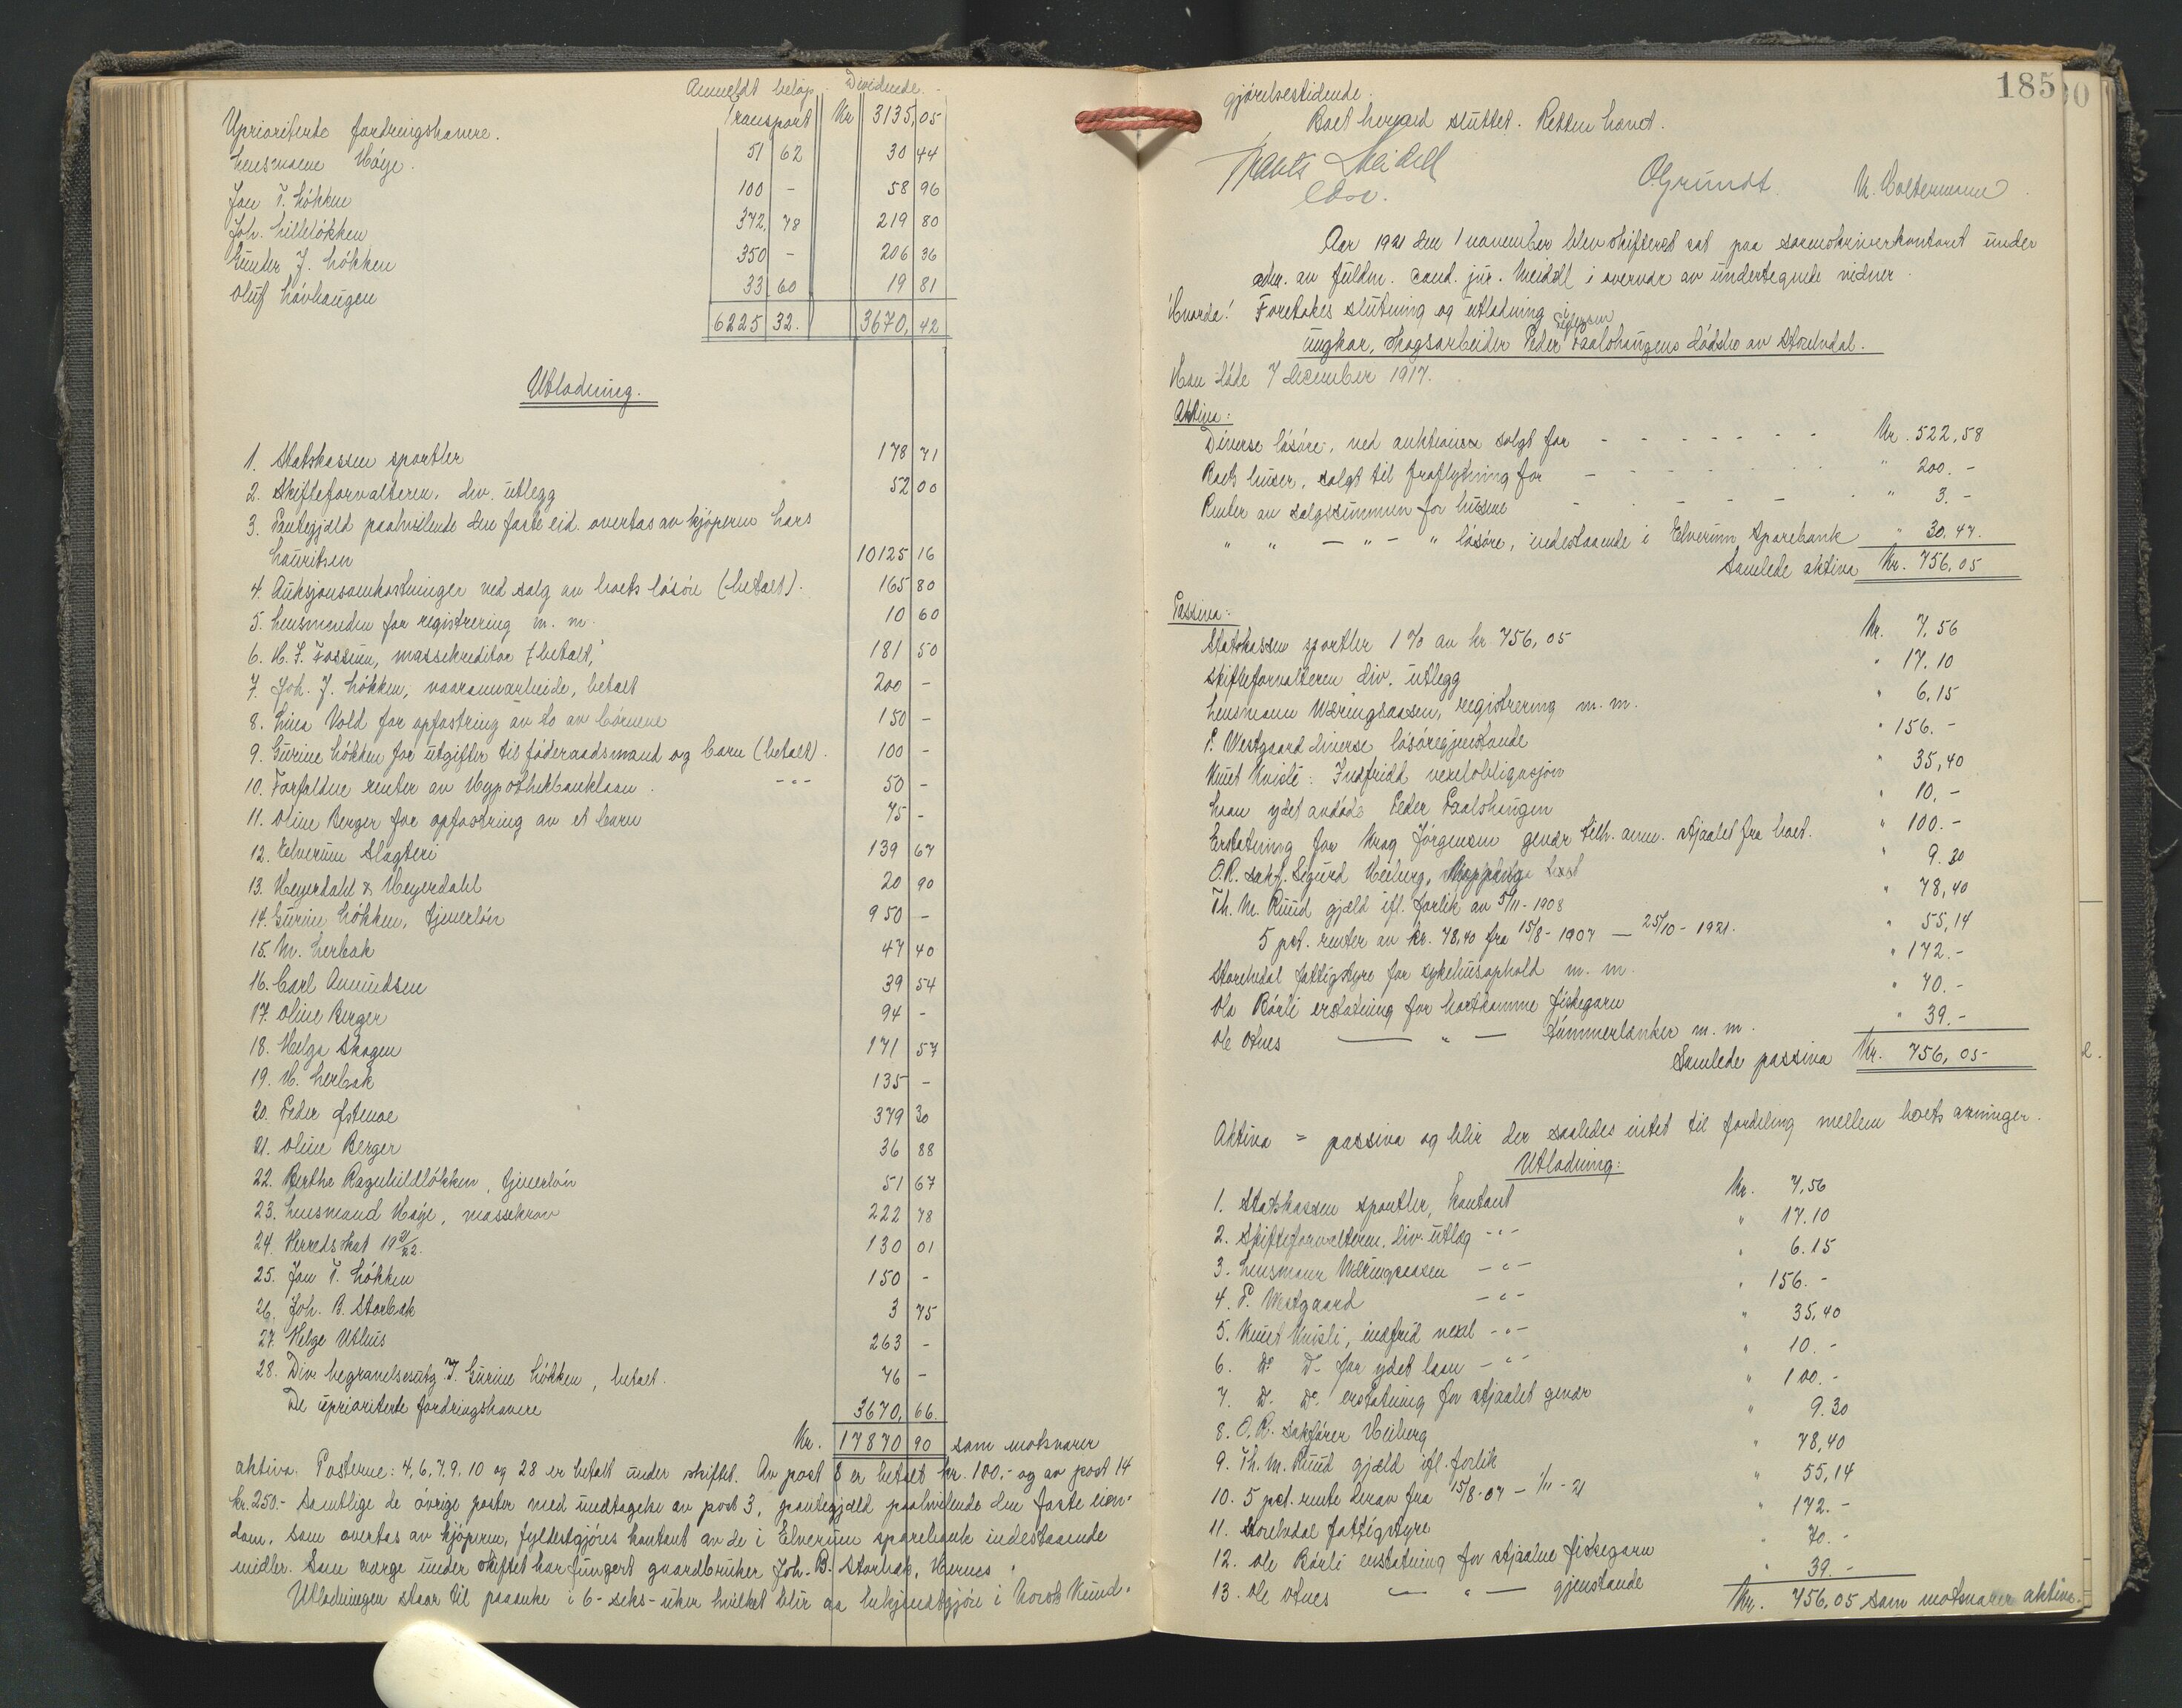 Anmeldt beløp. Dividende.
Uprioriterte fordringshavere. Transport Kr 3135,05
Lensmann Høye. 51 62 30 44
Jon T. Løkken 100 - 58 96
Joh. Lilleløkken 372,78 219 80
Gunder J. Løkken 350 - 206 36
Oluf Løvhaugen 33 60 19 81
6225 32. 3670,42
Utlodning.
1. Statskassen sportler 178 71
2. Skifteforvalteren, div. utlegg 52 00
3. Pantegjæld paahvilende den faste eid. overtas av kjøperen Lars
Lauritsen 10125 16
4. Auksjonsomkostninger ved salg av boets løsøre (betalt). 165 80
5. Lensmanden for registrering m. m. 10 60
6. H. F. Fossum, massekreditor (betalt) 181 50
7. Joh. J. Løkken, vaaronnarbeide, betalt 200 -
8. Lina Vold for opfostring av to av børnene 150 -
9. Gurine Løkken for utgifter til føderaadsmand og barn (betalt). 100 -
10. Forfaldne renter av Hypothekbanklaan. -"- 50 -
11. Oline Berger for opfostring av et barn 75 -
12. Elverum Slagteri 139 67
13. Heyerdahl & Heyerdahl 20 90
14. Gurine Løkken, tjenerløn 950 -
15. M. Lerbak 47 40
16. Carl Amundsen 39 54
17. Oline Berger 94 -
18. Helga Skogen 171 57
19. H. Lerbak 135 -
20. Peder Østmoe 379 30
21. Oline Berger 36 88
22. Berthe Ragnhildløkken, tjenerløn 51 67
23. Lensmand Høye, massekrav 222 78
24. Herredskat 1921/22. 130 01
25. Jon T. Løkken 150 -
26. Joh. B. Storbak 3 75
27. Helge Uthus 263 -
28. Div. begravelsesutg. T. Gurine Løkken, betalt. 76 -
De uprioriterte fordringshavere 3670,66.
Kr. 17870 90 som motsvarer
aktiva. Posterne: 4, 6, 7, 9, 10 og 28 er betalt under skiftet. Av post 8 er betalt kr. 100,- og av post 14
kr. 250.- Samtlige de øvrige poster med undtagelse av post 3, pantegjæld paahvilende den faste eien-
dom, som overtas av kjøperen, fyldestgjøres kontant av de i Elverum sparebank indestaaende
midler. Som verge under skiftet har fungert gaardbruker Joh. B. Storbak, Hernes.
Utlodningen staar til paaanke i 6 - seks - uker hvilket blir aa bekjendtgjøre i Norsk Kund-
185
gjørelsestidende.
Boet herved sluttet. Retten hævet.
Frants Meidell
edsv.
O. Grundt. K. Coltermann
Aar 1921 den 1 november blev skifteret sat paa sorenskriverkontoret under
adm. av fuldm. cand. jur. Meidell i overvær av undertegnede vidner.
Hvorda! Foretokes slutning og utlodning i
ungkar, skogsarbeider Peder Pedersen Paalshaugens dødsbo av Storelvdal.
Han døde 7 december 1917.
Aktiva:
Diverse løsøre, ved auktionen solgt for - - - - - - Kr. 522,58
Boets huser, solgt til fraflytning for - - - - - " 200.-
Renter av salgssummen for husene - - - - " 3.-
" " - " - " løsøre, indestaaende i Elverum Sparebank " 30,47.
Samlede aktiva Kr. 756,05
Passiva:
Statskassen sportler 1 % av kr 756,05 Kr. 7,56
Skifteforvalteren div. utlegg " 17.10
Lensmann Wæringsaasen, registrering m. m. " 6.15
P. Westgaard diverse løsøregjenstande " 156.-
Knut Kvisle: Indfridd vexelobligasjon " 35,40
Laan ydet avdøde Peder Paalshaugen " 10.-
Erstatning for Krag Jørgensen gevær tilh. ann. stjaalet fra boet. " 100.-
O.R. sakf. Sigurd Heiberg, " 9.30
Th. M. Ruud gjæld ifl. forlik av 5/11-1908 " 78,40
5 pct. renter av kr. 78,40 fra 15/8-1907 - 25/10-1921. " 55,14
Storelvdal fattigstyre for sykehusophold m. m. " 172.-
Ola Børli erstatning for bortkomne fiskegarn " 70.-
Ole Otnes - " - tømmerlænker m. m. " 39.-
Samlede passiva Kr. 756,05
Aktiva = passiva og blir der saaledes intet til fordeling mellem boets arvinger.
Utlodning:
1. Statskassen sportler, kontant Kr. 7,56
2. Skifteforvalteren, div. utlæg -"- " 17.10
3. Lensmann Wæringsaasen -"- " 6.15
4. P. Westgaard -"- " 156.-
5. Knut Kvisli, indfrid vexel -"- " 35,40
6. Do Do for ydet laan -"- " 10.-
7. Do Do erstatning for stjaalet gevær " 100.-
8. O.R. sakfører Heiberg " 9.30
9. Th. M. Ruud gjæld ifl. forlik " 78,40
10. 5 pct. rente derav fra 15/8-07 - 1/11-21 " 55,14
11. Storelvdal fattigstyre " 172.-
12. Ole Børli erstatning for stjaalne fiskegarn " 70.-
13. Ole Otnes - " - gjenstande " 39.-
Kr. 756,05 som motsvarer aktiva.